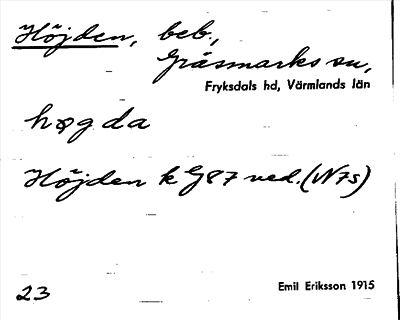 Höjden, beb.,
Gräsmarks sn,
Fryksdals hd, Värmlands län
høgda
Höjden k G87 ved. (N7s)
23
Emil Eriksson 1915